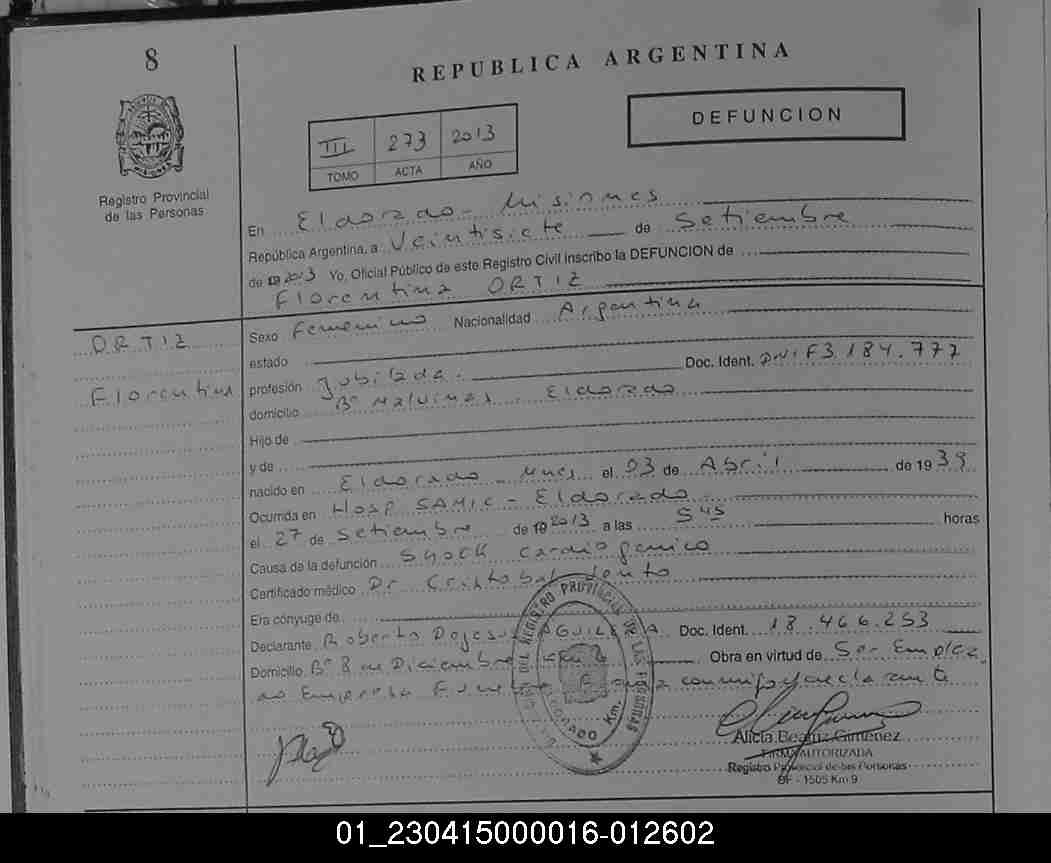 8
REPUBLICA ARGENTINA
DEFUNCION
III 273 2013
TOMO ACTA AÑO
Registro Provincial
de las Personas
En Eldorado - Misiones
República Argentina, a Veintisiete de Setiembre
de 2013 Yo, Oficial Público de este Registro Civil inscribo la DEFUNCION de
Florentina ORTIZ
ORTIZ
Florentina
Sexo Femenino Nacionalidad Argentina
estado
profesión Jubilada. Doc. Ident. DNI F3.184.777
domicilio Bº Malvinas - Eldorado
Hijo de
y de
nacido en Eldorado Mnes el 03 de Abril de 1939
Ocurrida en Hosp SAMIC - Eldorado
el 27 de Setiembre de 2013 a las 5 45 horas
Causa de la defunción Shock Cardiogenico
Certificado médico Dr Cristobal
Era cónyuge de
Declarante Roberto AGUILERA Doc. Ident. 18.466.253
Domicilio Bº 8 de Diciembre Obra en virtud de Ser Emplea
do Empresa conmigo
Alicia Beatriz Gimenez
FIRMA AUTORIZADA
Registro Provincial de las Personas
OF - 1505 Km 9
DEL REGISTRO PROVINCIAL DE LAS PERSONAS
ELDORADO Km.
01_230415000016-012602